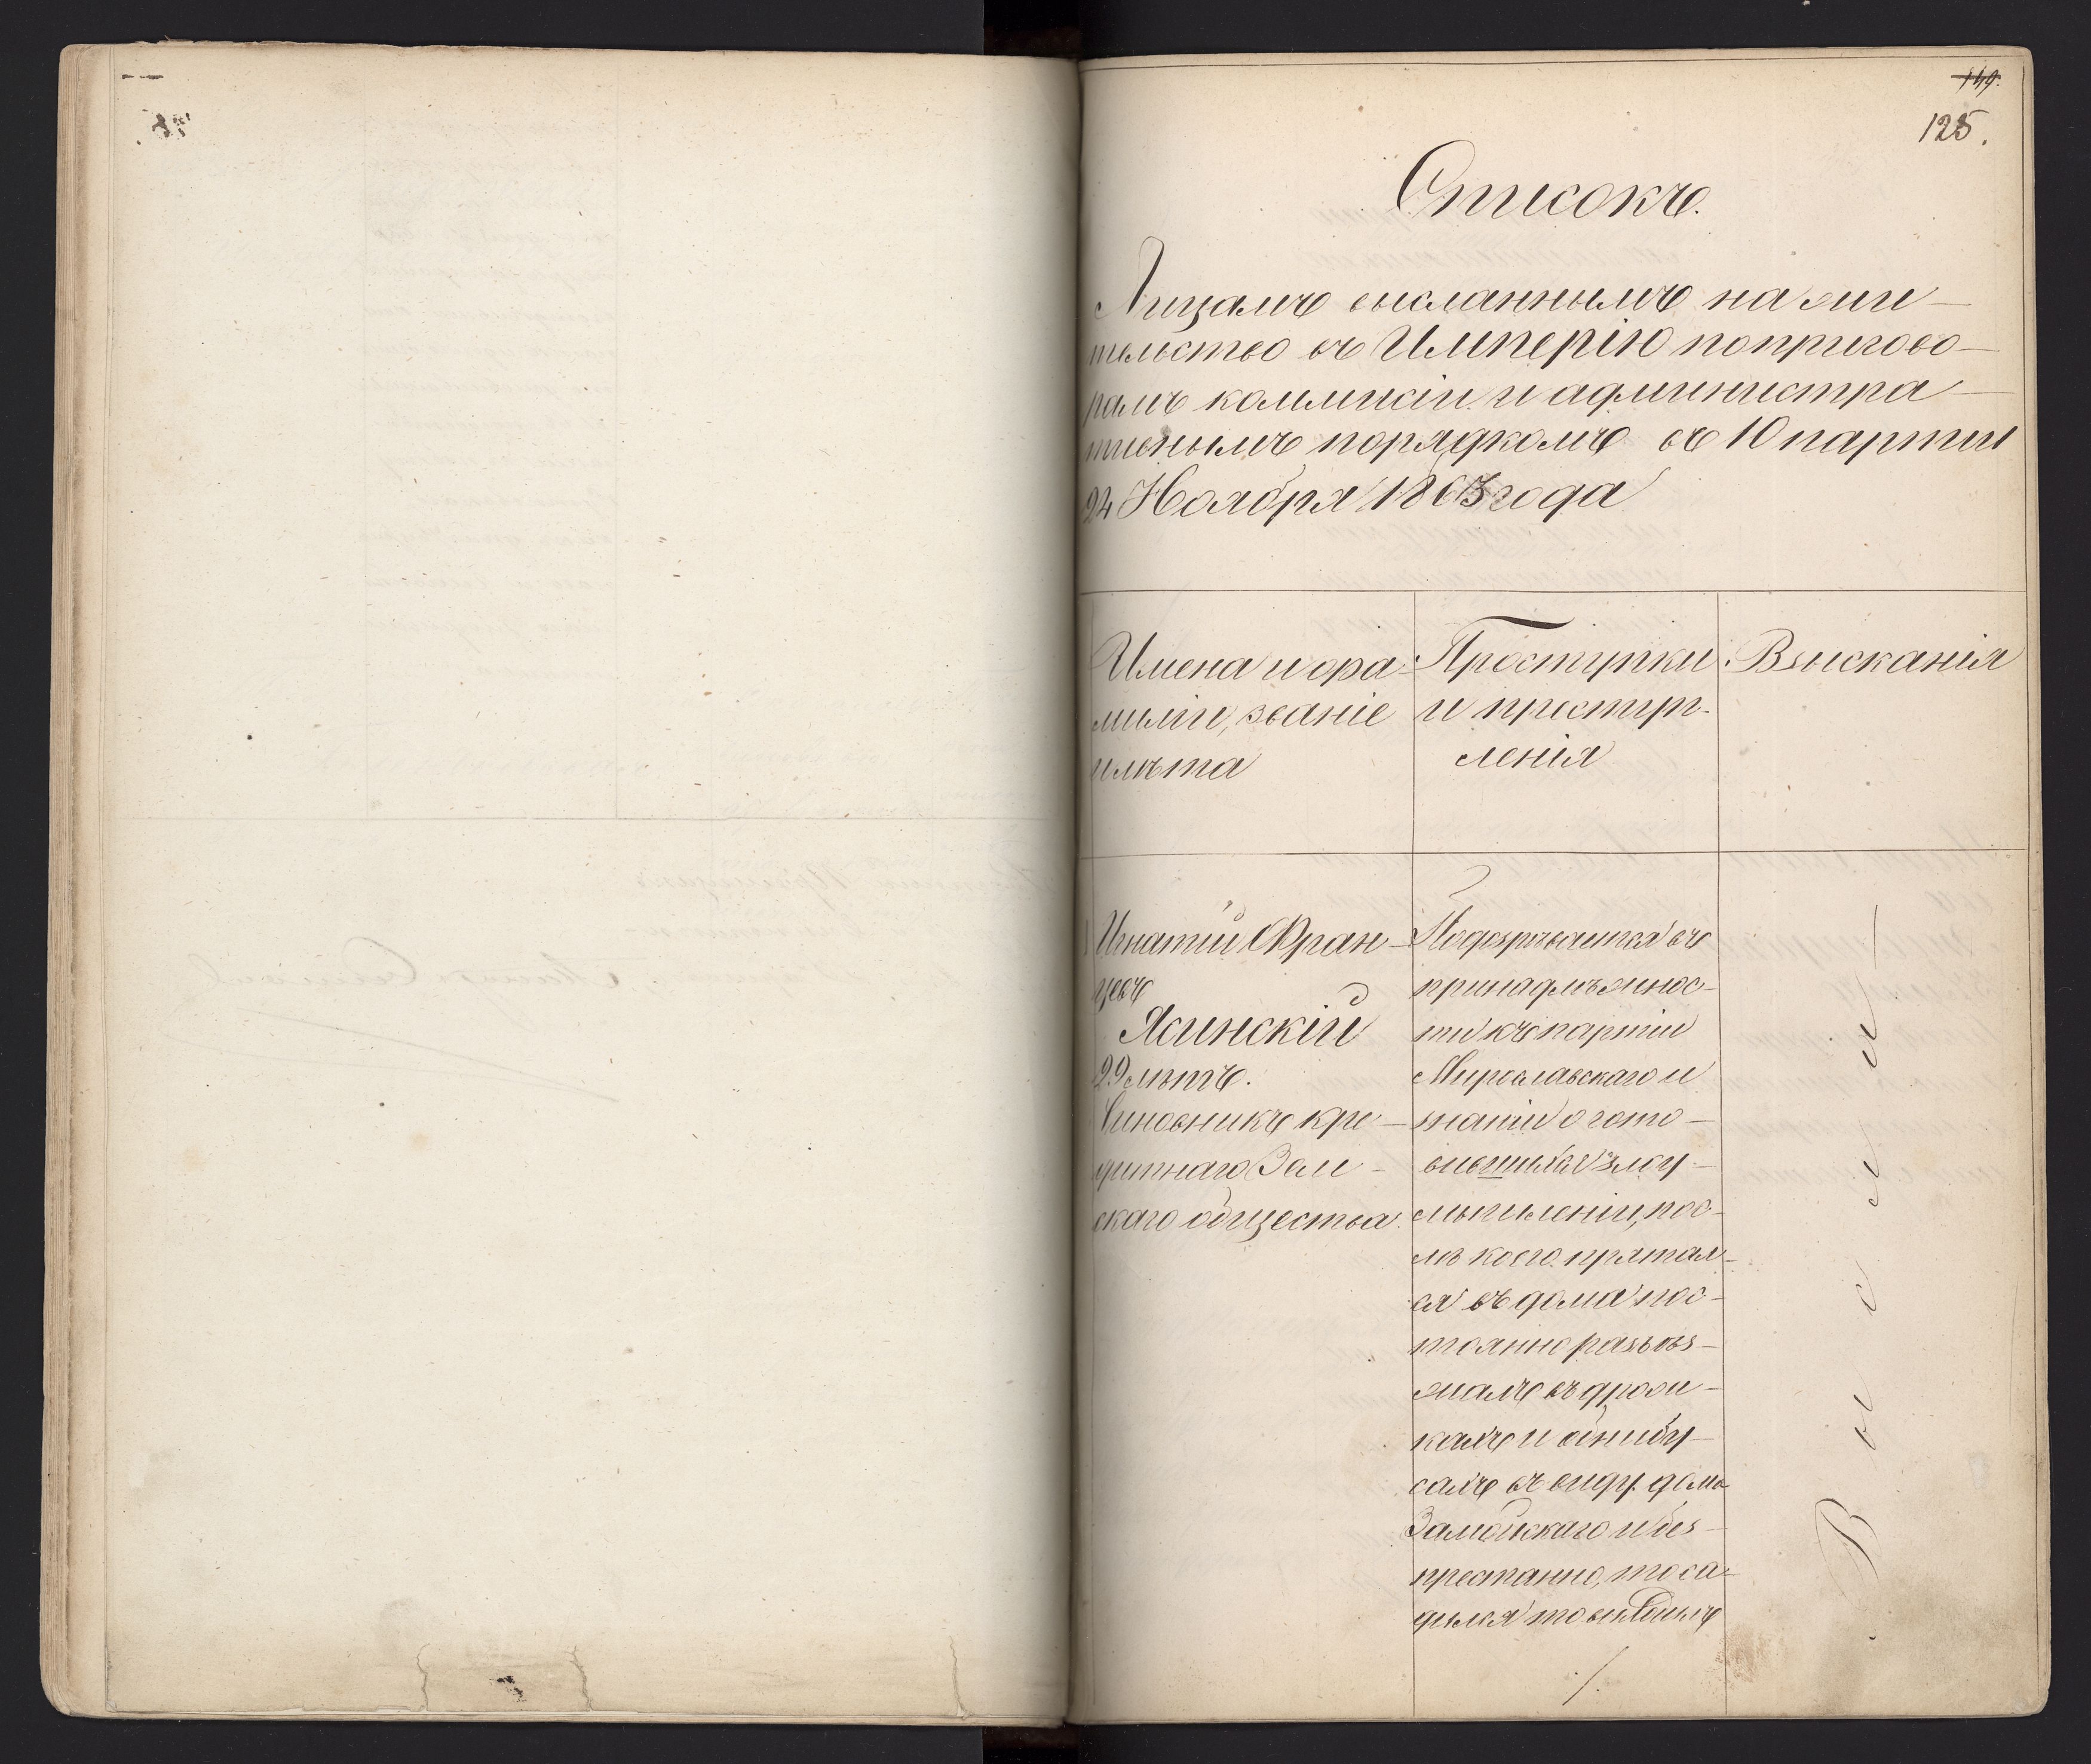 149.
125.
Списокъ.
Лицамъ высланнымъ на жи-
тельство въ Имперію по пригово-
рамъ коммисіи и администра-
тивнымъ порядкомъ въ 10 партіи
24 Ноября 1863 года
Имена и фа-
миліи, званіе
и лѣта
Проступки
и преступ-
ленія
Взысканія
1 Игнатій Фран-
цевъ
Ясинскій
29 лѣтъ.
Чиновникъ кре-
дитнаго Зем-
скаго общества.
Подозрѣвается въ
принадлѣжнос-
ти къ партіи
Мирославскаго и
знатіи о гото-
вившихся злоу-
мышленіи, пос-
лѣ коего прятал-
ся въ домахъ пос-
тоянно разъѣз-
жалъ въ дрож-
кахъ и омнибу-
сахъ въ виду дома
Замойскаго и без-
престанно, то са-
дился то выходилъ
/.